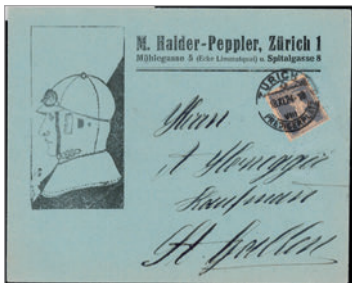 M. Haider-Peppler, Zürich 1
Mühlegasse 5 (Ecke Limmatquai) u. Spitalgasse 8
ZÜRICH
Herrn
A Honegger
Kaufmann
St. Gallen